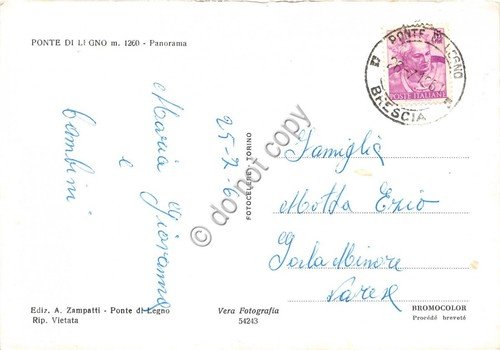 PONTE DI LEGNO m. 1260 - Panorama
PONTE DI LEGNO
BRESCIA
POSTE ITALIANE
25-7-6
Maria Giovanna
e
bambini
Famiglia
Motta Enio
Gorla Minore
Varese
FOTOCELERE TORINO
do not copy
Ediz. A. Zampatti - Ponte di Legno
Rip. Vietata
Vera Fotografia
54243
BROMOCOLOR
Procédé breveté